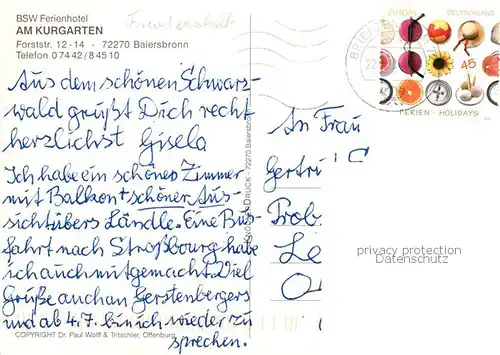 BSW Ferienhotel
AM KURGARTEN
Forststr. 12-14 · 72270 Baiersbronn
Telefon 0 74 42 / 8 45 10
Freudenstadt
Aus dem schönen Schwarz-
wald grüßt Dich recht
herzlichst Gisela
Ich habe ein schönes Zimmer
mit Balkon + schöner Aus-
sicht übers Ländle. Eine Bus-
fahrt nach Straßbourg habe
ich auch mitgemacht. Viel
Grüße auch an Gerstenbergers
und ab 4.7. bin ich wieder zu
sprechen.
COPYRIGHT Dr. Paul Wolff & Tritschler, Offenburg
DRUCK - 72270 Baiersbronn
EUROPA DEUTSCHLAND
45
FERIEN · HOLIDAYS
BRIEF
22
An Frau
Gertr
Prob
Le
privacy protection
Datenschutz